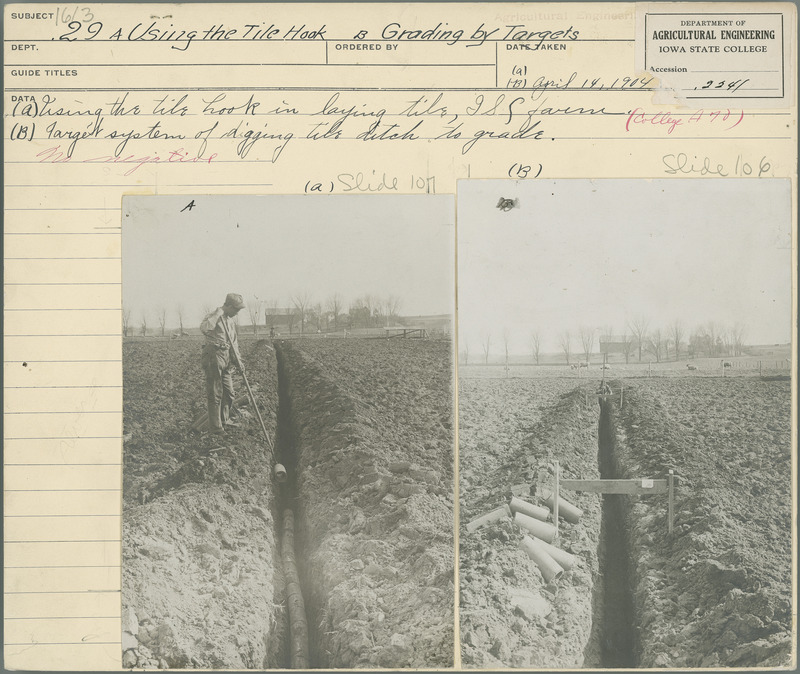 SUBJECT 1613
.29 A Using the Tile Hook B Grading by Targets
Agricultural Engineering
DEPT.
ORDERED BY
DATE TAKEN
GUIDE TITLES
(a)
(B) April 14, 1904
DEPARTMENT OF
AGRICULTURAL ENGINEERING
IOWA STATE COLLEGE
Accession
.2241
DATA
(a) Using the tile hook in laying tile, I S C farm. (College A 70)
(B) Target system of digging tile ditch to grade.
No negative
(a) Slide 107
(B) Slide 106
A